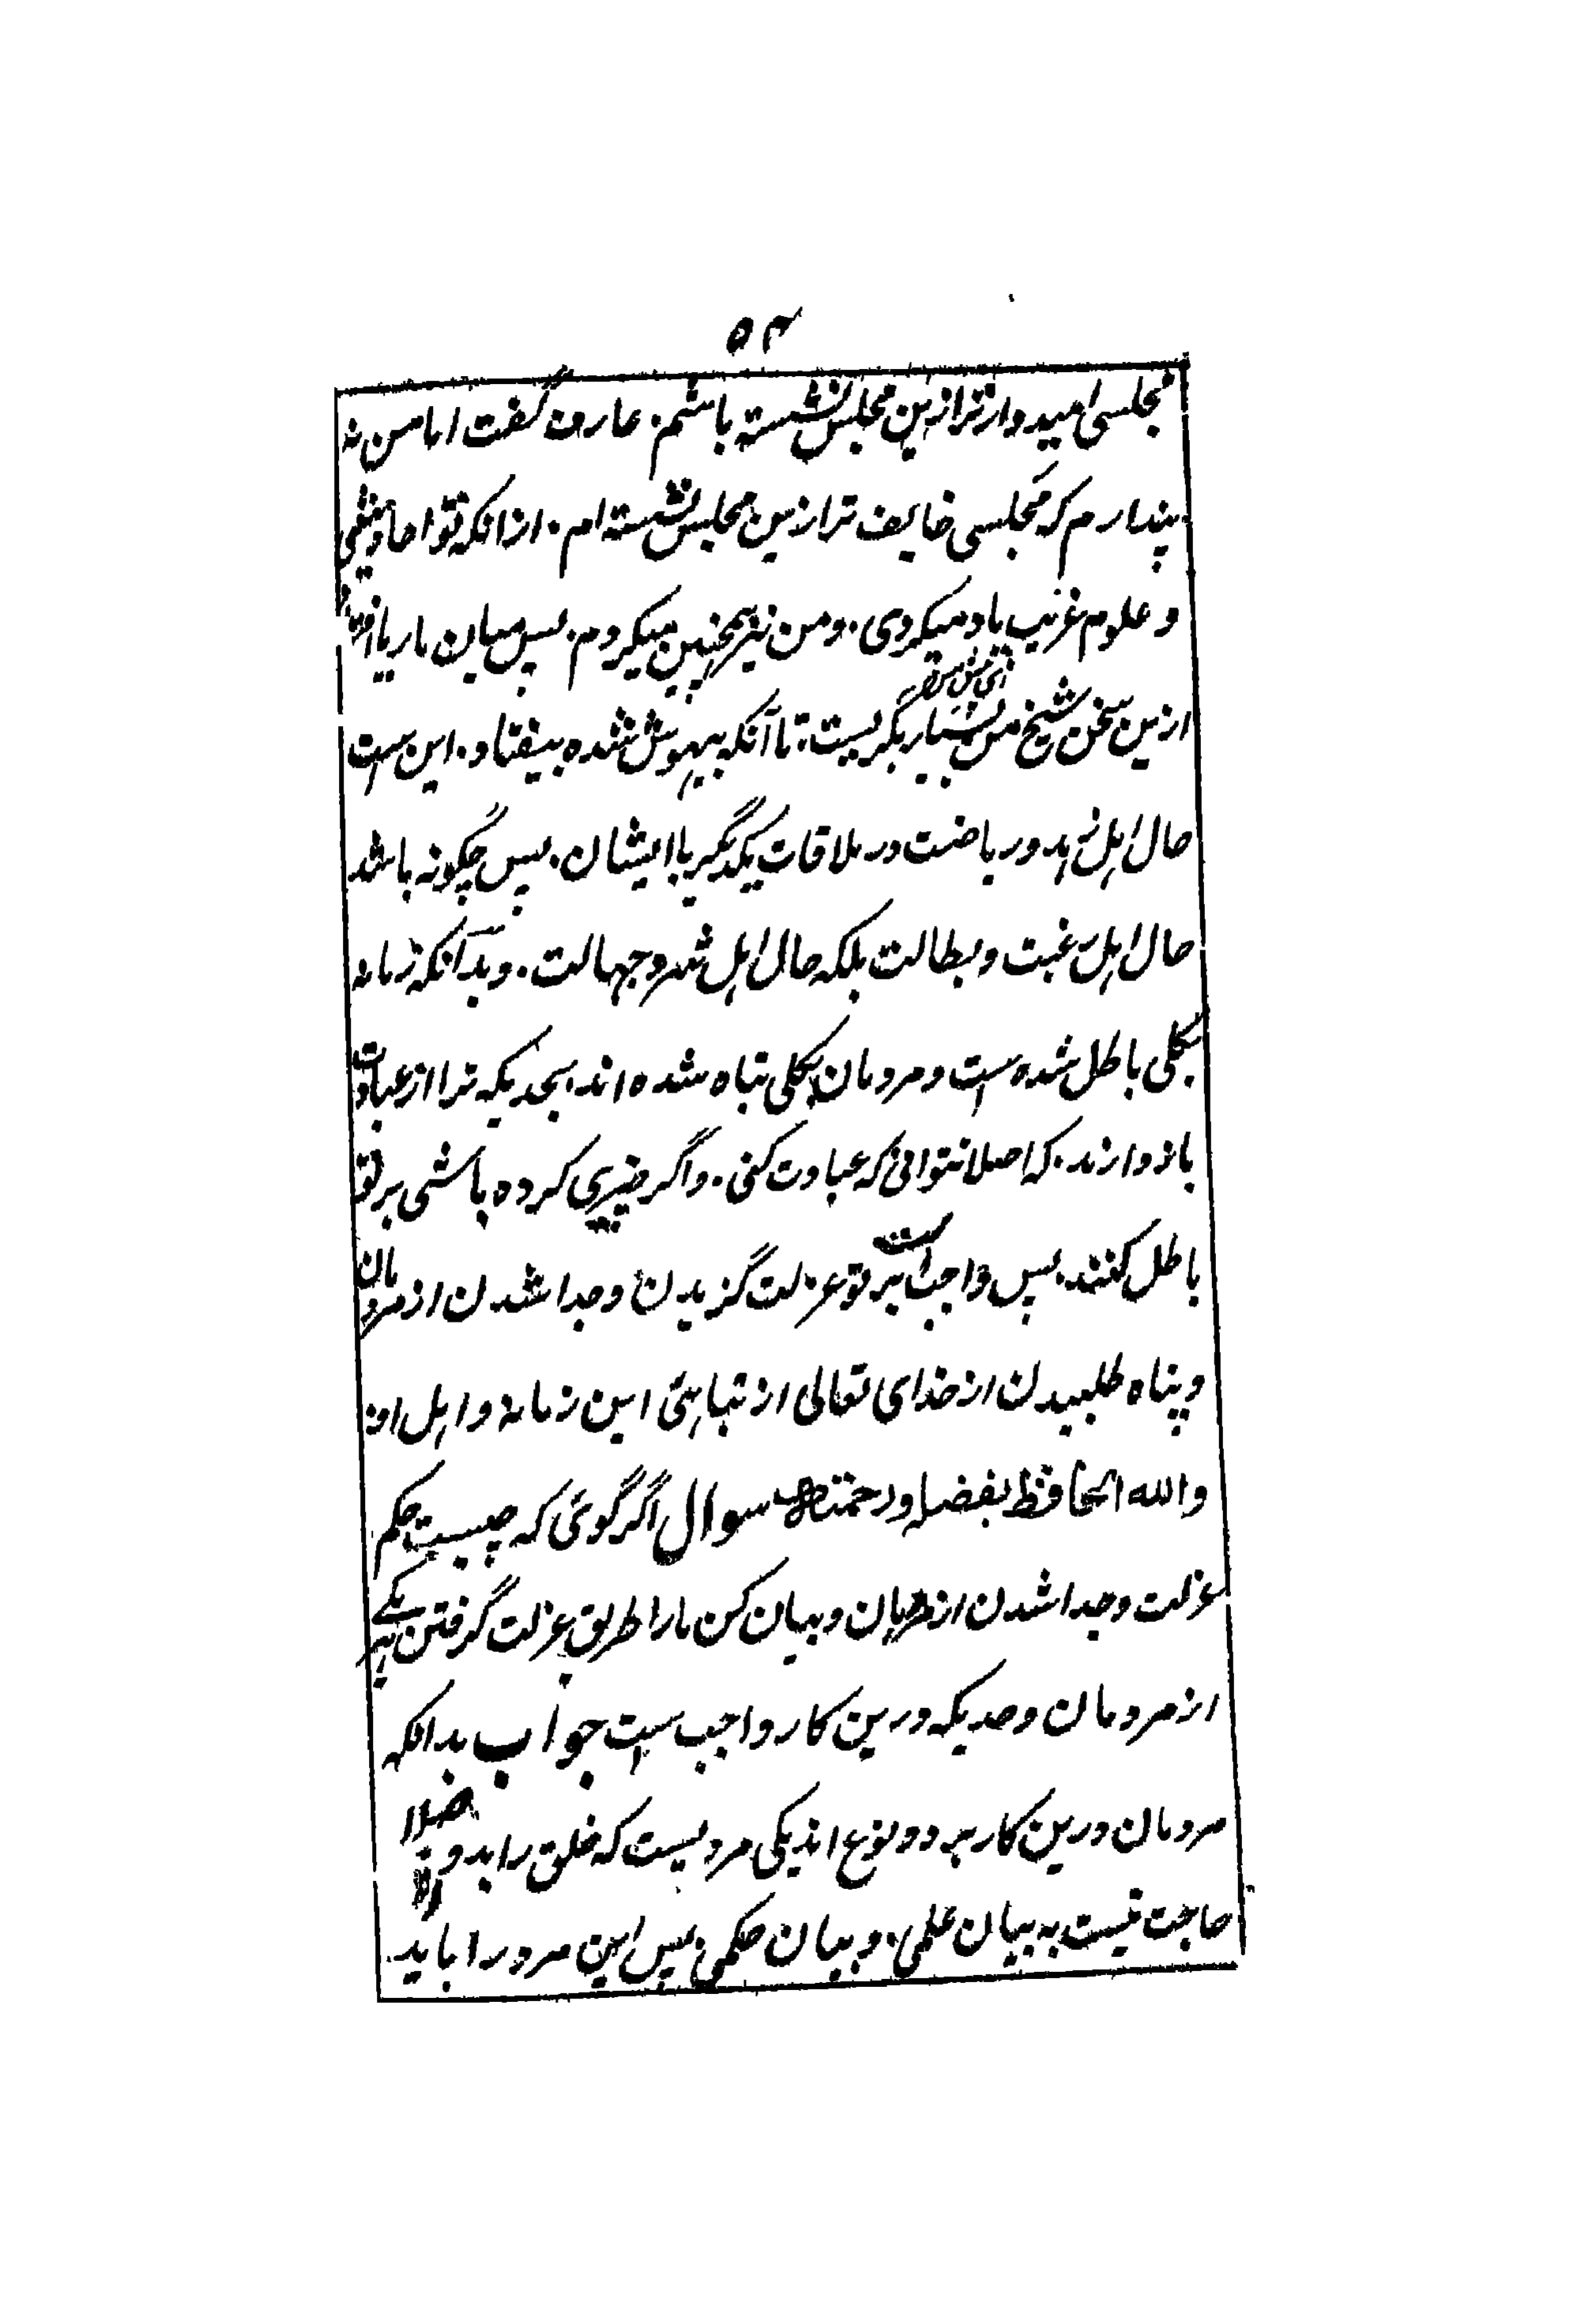 ۵۴
مجلسی امیدوارتر ازین مجلس نشسته باشم. عارف گفت اما من نه
پندارم که مجلسی خایف تر ازین مجلس نشسته ام. از انکه تو احادیثی
و علوم غریب یاد میکردی. و من نیز همچنین میکردم. پس میان ما ریا
ازین سخن شیخ من بسیار بگریست، تا آنکه بیهوش شده بیفتاد. این ست
حال اهل زهد و ریاضت در ملاقات یکدیگر با ایشان. پس چگونه باشد
حال اهل رغبت و بطالت بلکه حال اهل شر و جهالت. و بدآنکه زمانه
بکلی باطل شده ست و مردمان بکلی تباه شده اند. بحدیکه ترا از عبادت
باز دارند. که اصلا نتوانی که عبادت کنی. و اگر چیزی کرده باشی بر تو
باطل کنند. پس واجب است بر تو عزلت گزیدن و جدا شدن از مردمان
و پناه طلبیدن از خدای تعالی از تباهئ این زمانه و اهل او
والله الحافظ بفضله ورحمته سوال اگر گوئی که چیست حکم
عزلت و جدا شدن از مردمان و بیان کن ما را طریق عزلت گرفتن
از مردمان و حدیکه درین کار واجب ست جواب بدانکه
مردمان درین کار بر دو نوع اند یکی مردیست که خلق را بدو
حاجت نیست به بیان علمی. و بیان حکمی. پس این مرد را باید